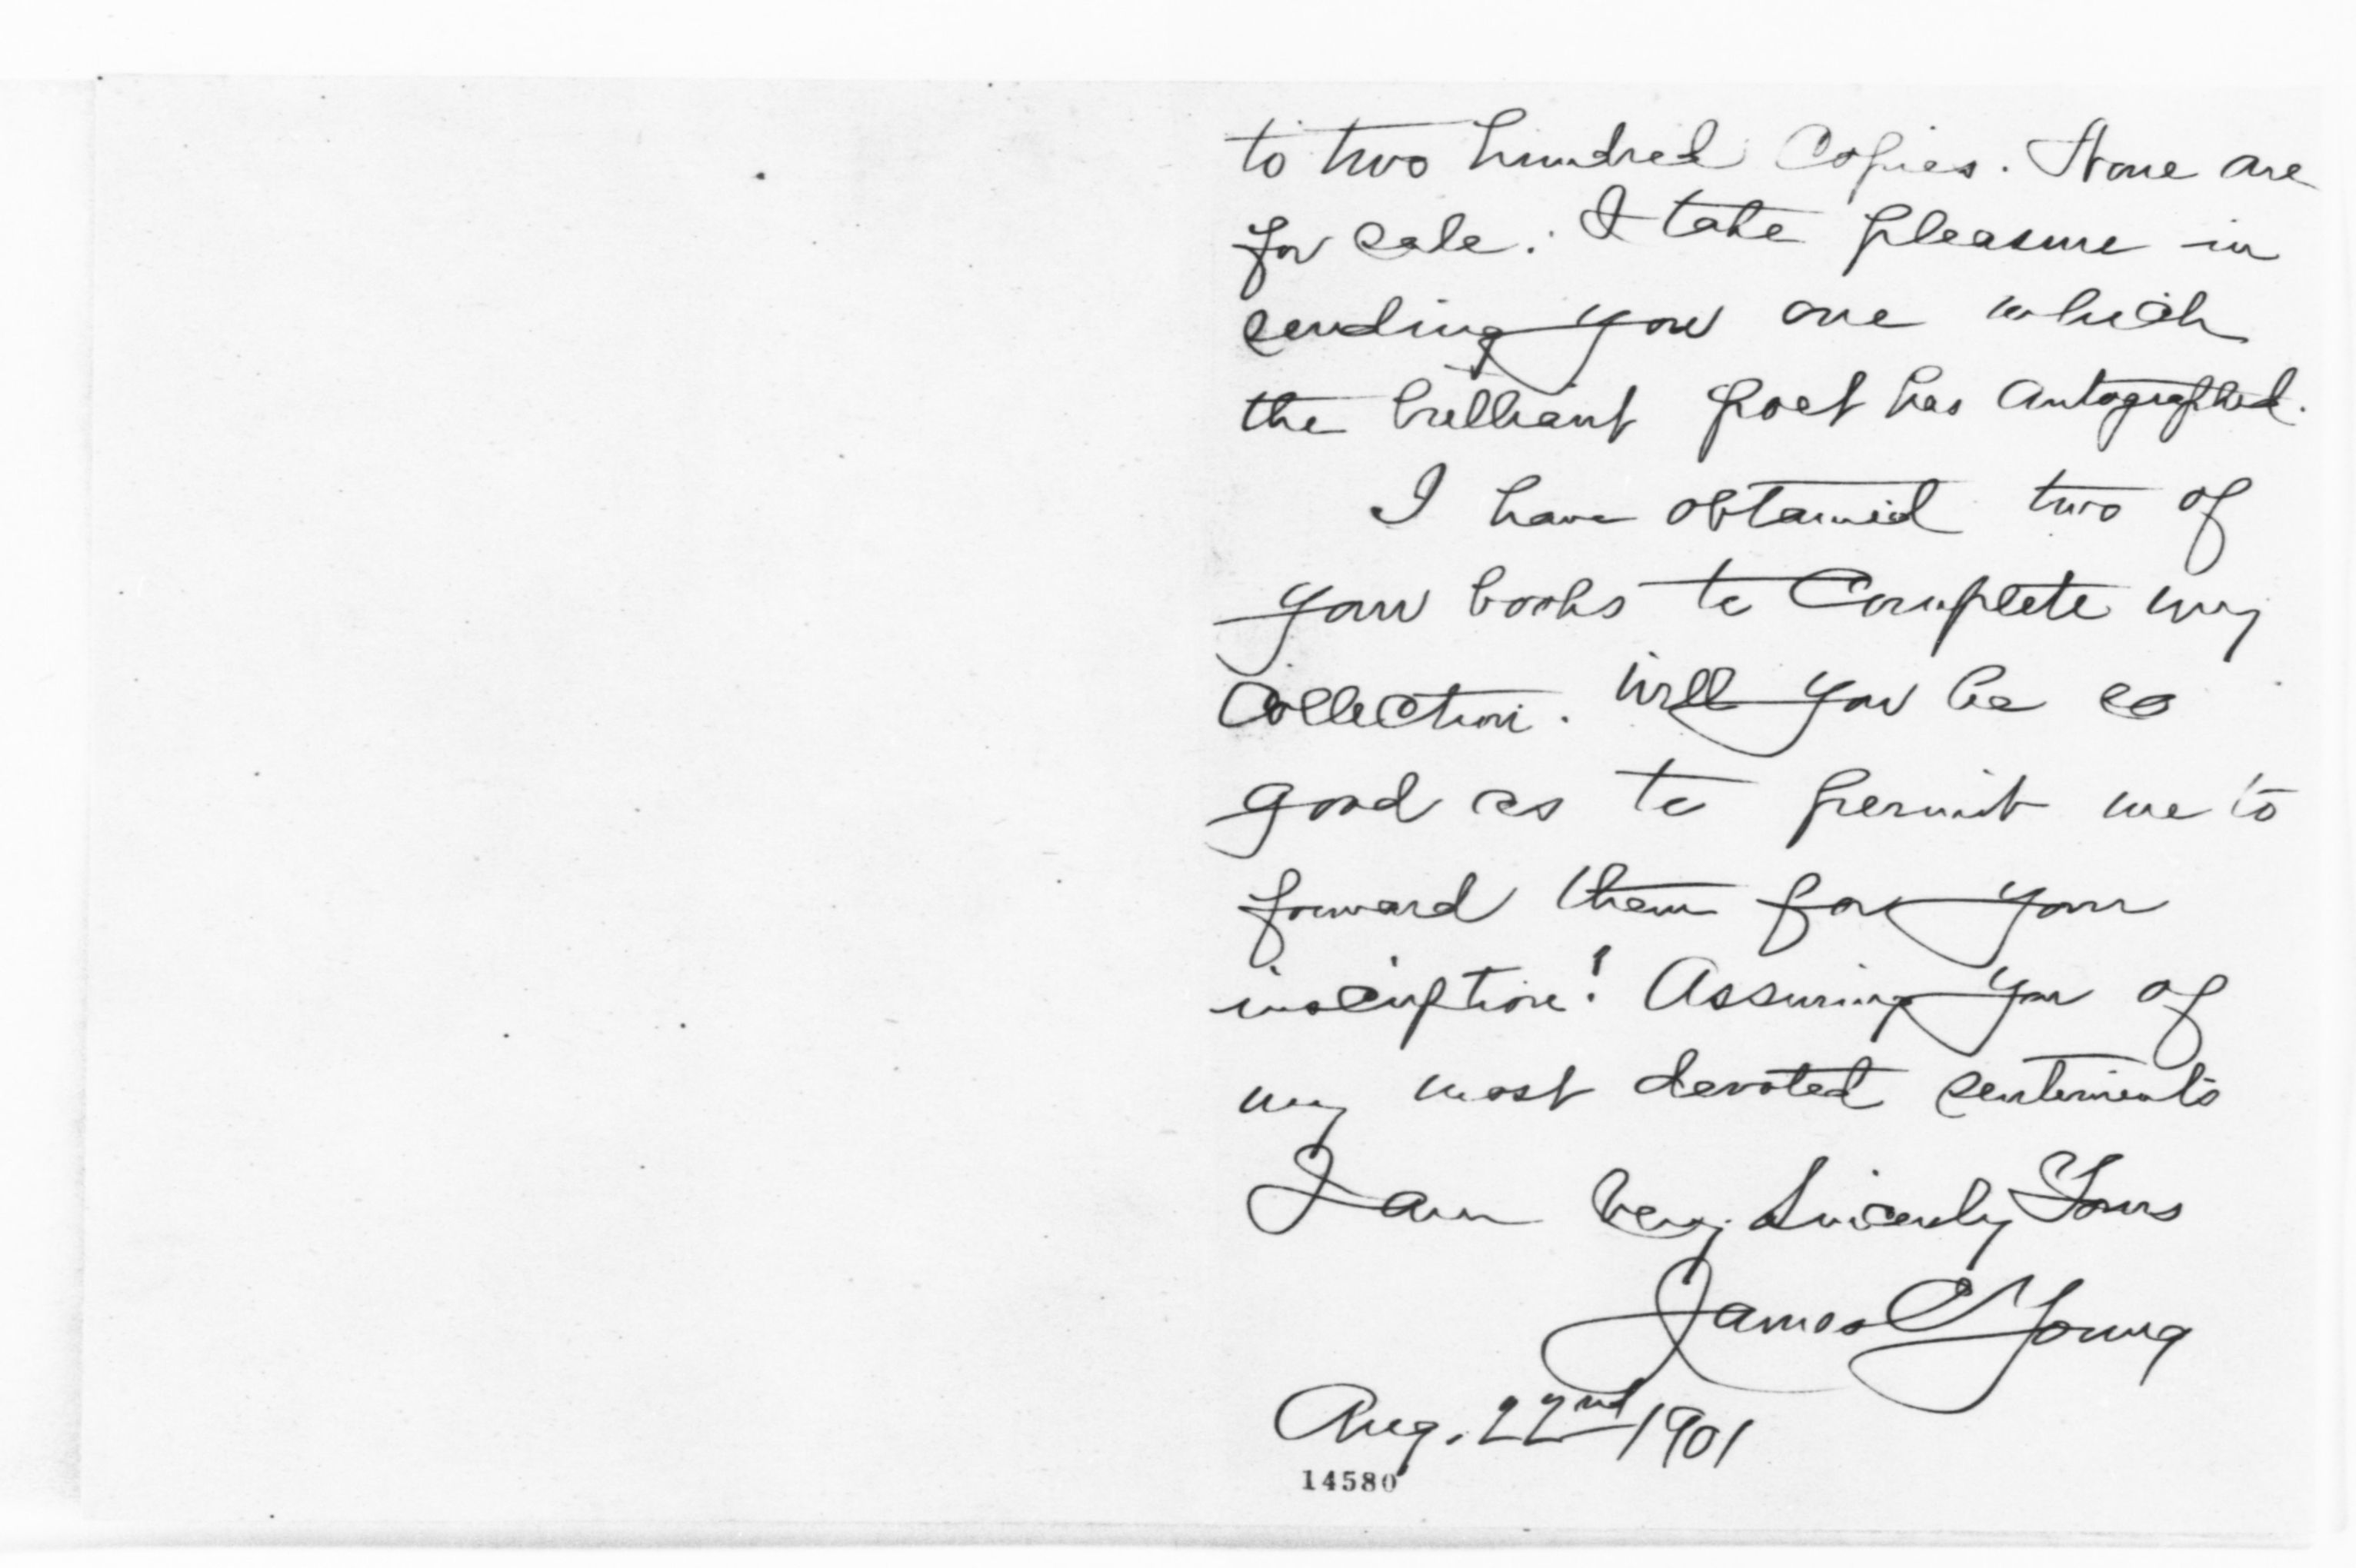 to two hundred Copies. None are
for sale. I take pleasure in
sending you one which
the brilliant poet has autographed.
I have obtained two of
your books to Complete my
Collection. Will you be so
good as to permit me to
forward them for your
inscription! Assuring you of
my most devoted sentiments
I am Very Sincerely Yours
James C Young
Aug. 22nd 1901
14580